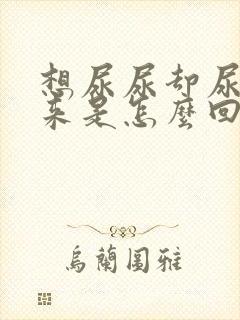 想尿尿却尿
来是怎麼回
烏蘭圖雅